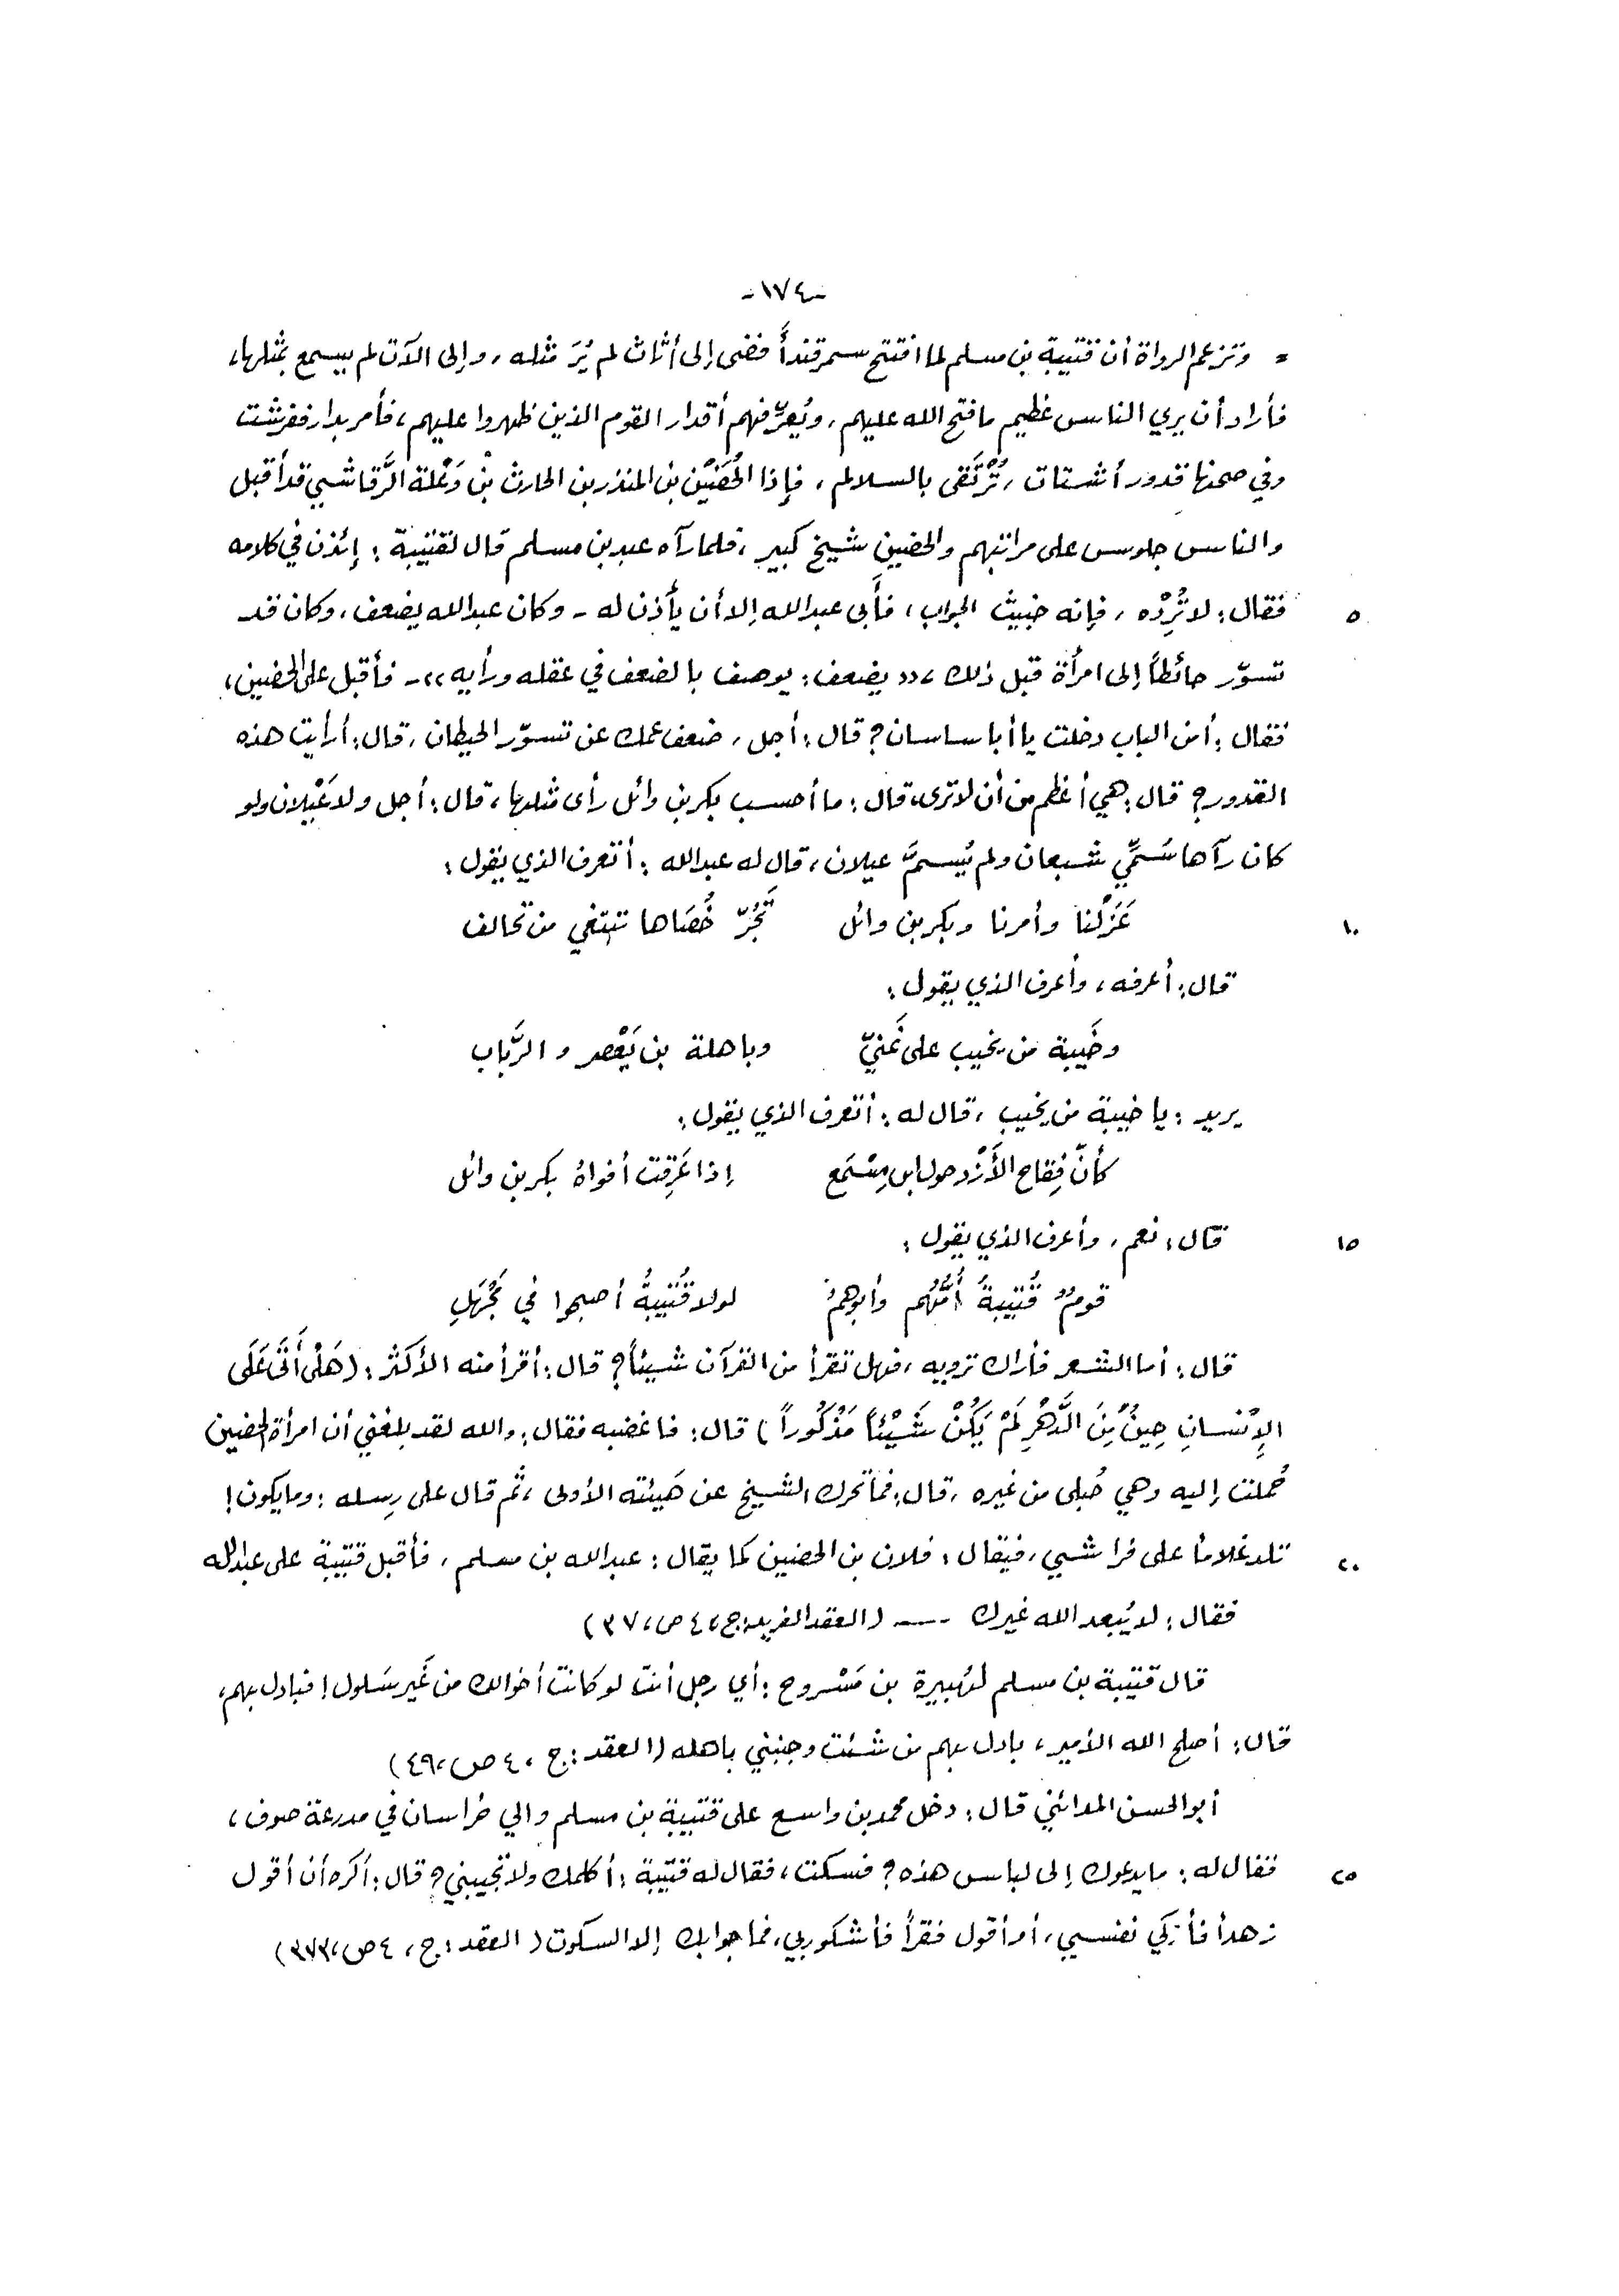 -١٧٤-
= وتزعم الرواة أن قتيبة بن مسلم لما افتتح سمرقنداً فضى إلى أثاث لم يُرَ مثله، وإلى الآت لم يسمع بمثلها،
فأراد أن يري الناس عظيم ما فتح الله عليهم، ويُعرّفهم أقدار القوم الذين ظهروا عليهم، فأمر بدار ففرشت
وفي صحنها قدور أشتات، تُرْتَقى بالسلالم، فإذا الحُضَيْن بن المنذر بن الحارث بنْ وَعْلة الرَّقاشي قد أقبل
والناس جلوس على مراتبهم والحضين شيخ كبير، فلما رآه عبد بن مسلم قال لقتيبة: إئذن في كلامه
٥ فقال: لا تُرِدْه، فإنه خبيث الجواب، فأَبى عبد الله إلا أن يأذن له - وكان عبد الله يضعف، وكان قد
تسوّر حائطاً إلى امرأة قبل ذلك، «يضعف: يوصف بالضعف في عقله ورأيه» - فأقبل على الحضين،
فقال: أمن الباب دخلت يا أبا ساسان؟ قال: أجل، ضعف عمك عن تسوّر الحيطان، قال: أرأيت هذه
القدور؟ قال: هي أعظم من أن لا ترى، قال: ما أحسب بكر بن وائل رأى مثلها، قال: أجل ولا عَيْلان ولو
كان رآها سُمِّي شبعان ولم يُسمَّ عيلان، قال له عبد الله: أتعرف الذي يقول:
١٠ عَزَلْنا وأمرنا وبكر بن وائل تَجُرّ خُصَاها تبتغي من تحالف
قال: أعرفه، وأعرف الذي يقول:
وخَيبة من يخيب على غَنيّ وباهلة بن يَعْصر والرَّباب
يريد: يا خيبة من يخيب، قال له: أتعرف الذي يقول:
كأنّ فِقاح الأَزْد حول ابن مِسْمَع إذا عَرِقت أفواهُ بكر بن وائل
١٥ قال: نعم، وأعرف الذي يقول:
قومٌ قُتيبةُ أُمُّهُم وأبوهمُ لولا قُتَيبةُ أصبحوا في مَجْهَلِ
قال: أما الشعر فأراك ترويه، فهل تقرأ من القرآن شيئاً؟ قال: أقرأ منه الأكثر: (هَلْ أَتَى عَلَى
الإِنْسانِ حِينٌ مِنَ الدَّهْرِ لَمْ يَكُنْ شَيْئاً مَذْكُوراً) قال: فاغضبه فقال: والله لقد بلغني أن امرأة الحضين
حُملت إليه وهي حُبلى من غيره، قال: فما تحرك الشيخ عن هَيئته الأولى، ثم قال على رِسله: وما يكون!
٢٠ تلد غلاماً على فراشي، فيقال: فلان بن الحضين كما يقال: عبد الله بن مسلم، فأقبل قتيبة على عبد الله
فقال: لا يُبعد الله غيرك --- (العقد الفريد: ج، ٤ ص، ٣٧)
قال قتيبة بن مسلم لهُبيرة بن مَسْروح: أي رجل أنت لو كانت أخوالك من غَير سَلول! فبادل بهم،
قال: أصلح الله الأمير، بادل بهم من شئت وجنبني باهله (العقد: ج، ٤ ص، ٤٩)
أبو الحسن المدائني قال: دخل محمد بن واسع على قتيبة بن مسلم والي خراسان في مدرعة صوف،
٢٥ فقال له: ما يدعوك إلى لباس هذه؟ فسكت، فقال له قتيبة: أكلمك ولا تجيبني؟ قال: أكره أن أقول
زهداً فأزكي نفسي، أو أقول فقراً فأشكو ربي، فما جوابك إلا السكوت (العقد: ج، ٤ ص، ٣٧٣)